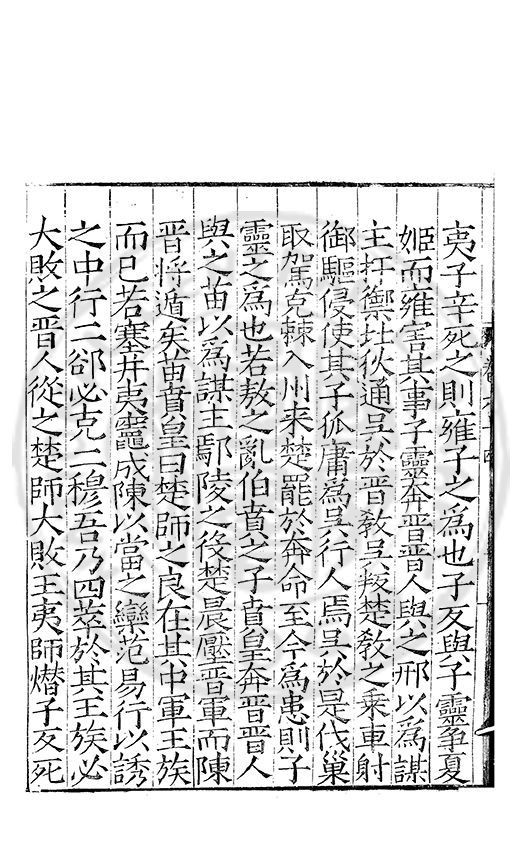 夷子辛死之則雍子之爲也子反與子靈爭夏
姬而雍害其事子靈奔晋晋人與之邢以爲謀
主扞禦北狄通吳於晋敎吳叛楚敎之乗車射
御驅侵使其子狐庸爲吳行人焉吳於是伐巢
取駕克棘入州来楚罷於奔命至今爲患則子
靈之爲也若敖之亂伯賁之子賁皇奔晋晋人
與之苗以爲謀主鄢陵之役楚晨壓晋軍而陳
晋將遁矣苗賁皇曰楚師之良在其中軍王族
而已若塞井夷竈成陳以當之欒范易行以誘
之中行二郤必克二穆吾乃四萃於其王族必
大敗之晋人從之楚師大敗王夷師熸子反死